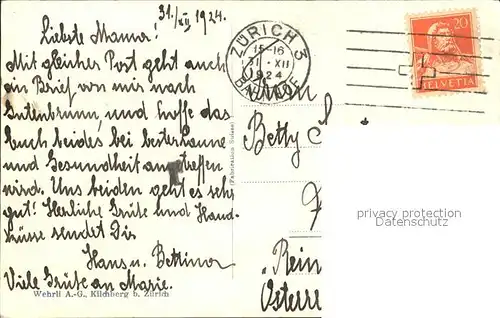 31./XII 1924.
Liebste Mama!
Mit gleicher Post geht auch
ein Brief von mir nach
Gutenbrunn, und hoffe das
Euch beides bei bester Laune
und Gesundheit antreffen
wird. Uns beiden geht es sehr
gut! Herzliche Grüße und Hand-
küsse sendet Dir
Hans u. Bettina
Viele Grüße an Marie.
Wehrli A.-G., Kilchberg b. Zürich
(Fabrication Suisse)
ZÜRICH 3
15-16
31. XII
1924
BAHNHOF
20
HELVETIA
Betty
privacy protection
Datenschutz
"Rein
Österre